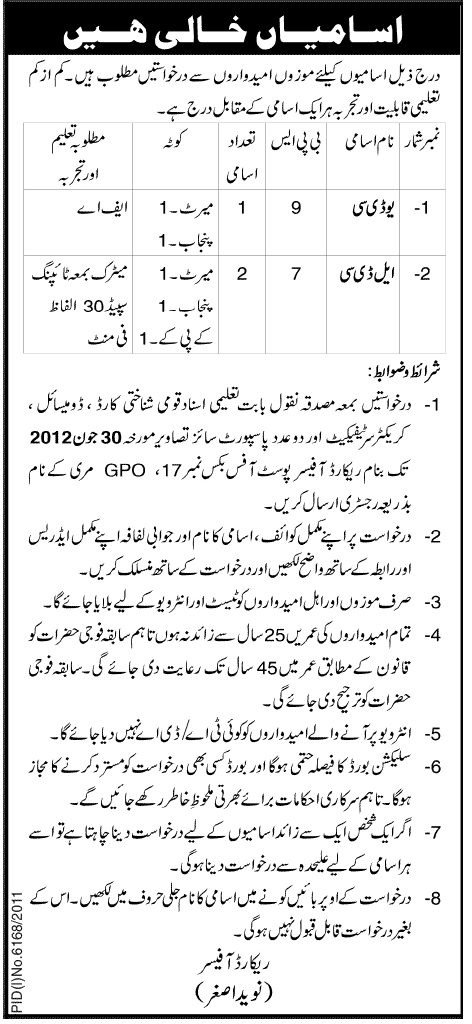 اسامیاں خالی ھیں
درج ذیل اسامیوں کیلئے موزوں امیدواروں سے درخواستیں مطلوب ہیں۔ کم از کم
تعلیمی قابلیت اور تجربہ ہر ایک اسامی کے مقابل درج ہے۔
نمبر شمار نام اسامی بی پی ایس تعداد اسامی کوٹہ مطلوبہ تعلیم اور تجربہ
1- یو ڈی سی 9 1 میرٹ۔1 ایف اے
پنجاب۔1
2- ایل ڈی سی 7 2 میرٹ۔1 میٹرک بمعہ ٹائپنگ
پنجاب۔1 سپیڈ 30 الفاظ
کے پی کے۔1 فی منٹ
شرائط و ضوابط:
1- درخواستیں بمعہ مصدقہ نقول بابت تعلیمی اسناد قومی شناختی کارڈ، ڈومیسائل،
کریکٹر سرٹیفکیٹ اور دو عدد پاسپورٹ سائز تصاویر مورخہ 30 جون 2012
تک بنام ریکارڈ آفیسر پوسٹ آفس بکس نمبر 17، GPO مری کے نام
بذریعہ رجسٹری ارسال کریں۔
2- درخواست پر اپنے مکمل کوائف، اسامی کا نام اور جوابی لفافہ اپنے مکمل ایڈریس
اور رابطہ کے ساتھ واضح لکھیں اور درخواست کے ساتھ منسلک کریں۔
3- صرف موزوں اور اہل امیدواروں کو ٹیسٹ اور انٹرویو کے لیے بلایا جائے گا۔
4- تمام امیدواروں کی عمریں 25 سال سے زائد نہ ہوں تاہم سابقہ فوجی حضرات کو
قانون کے مطابق عمر میں 45 سال تک رعایت دی جائے گی۔ سابقہ فوجی
حضرات کو ترجیح دی جائے گی۔
5- انٹرویو پر آنے والے امیدواروں کو کوئی ٹی اے/ ڈی اے نہیں دیا جائے گا۔
6- سلیکشن بورڈ کا فیصلہ حتمی ہوگا اور بورڈ کسی بھی درخواست کو مسترد کرنے کا مجاز
ہوگا۔ تاہم سرکاری احکامات برائے بھرتی ملحوظ خاطر رکھے جائیں گے۔
7- اگر ایک شخص ایک سے زائد اسامیوں کے لیے درخواست دینا چاہتا ہے تو اسے
ہر اسامی کے لیے علیحدہ سے درخواست دینا ہوگی۔
8- درخواست کے اوپر بائیں کونے میں اسامی کا نام جلی حروف میں لکھیں۔ اس کے
بغیر درخواست قابل قبول نہیں ہوگی۔
ریکارڈ آفیسر
(نوید اصغر)
PID(I)No.6168/2011